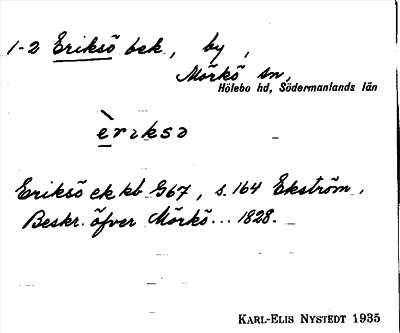 1-2 Eriksö bek., by,
Mörkö sn,
Hölebo hd, Södermanlands län
èriksə
Eriksö ek kb G67, s. 164 Ekström,
Beskr. öfver Mörkö... 1828.
KARL-ELIS NYSTEDT 1935